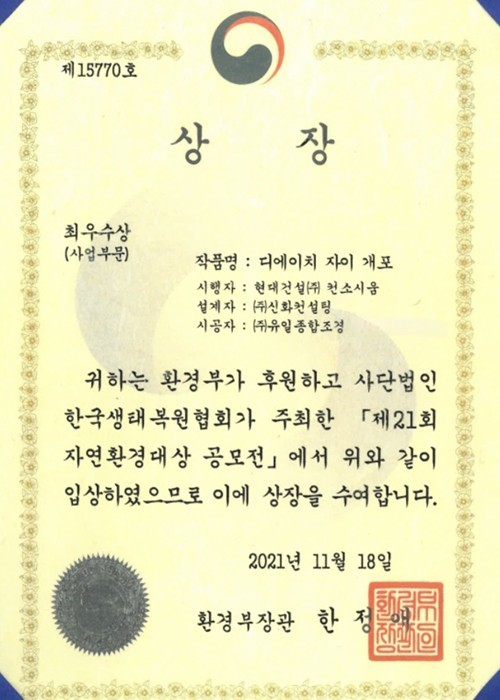 제15770호
상 장
최우수상
(사업부문)
작품명 : 디에이치 자이 개포
시행자 : 현대건설㈜ 컨소시움
설계자 : ㈜신화컨설팅
시공자 : ㈜유일종합조경
귀하는 환경부가 후원하고 사단법인
한국생태복원협회가 주최한 「제21회
자연환경대상 공모전」에서 위와 같이
입상하였으므로 이에 상장을 수여합니다.
2021년 11월 18일
환경부장관 한정애